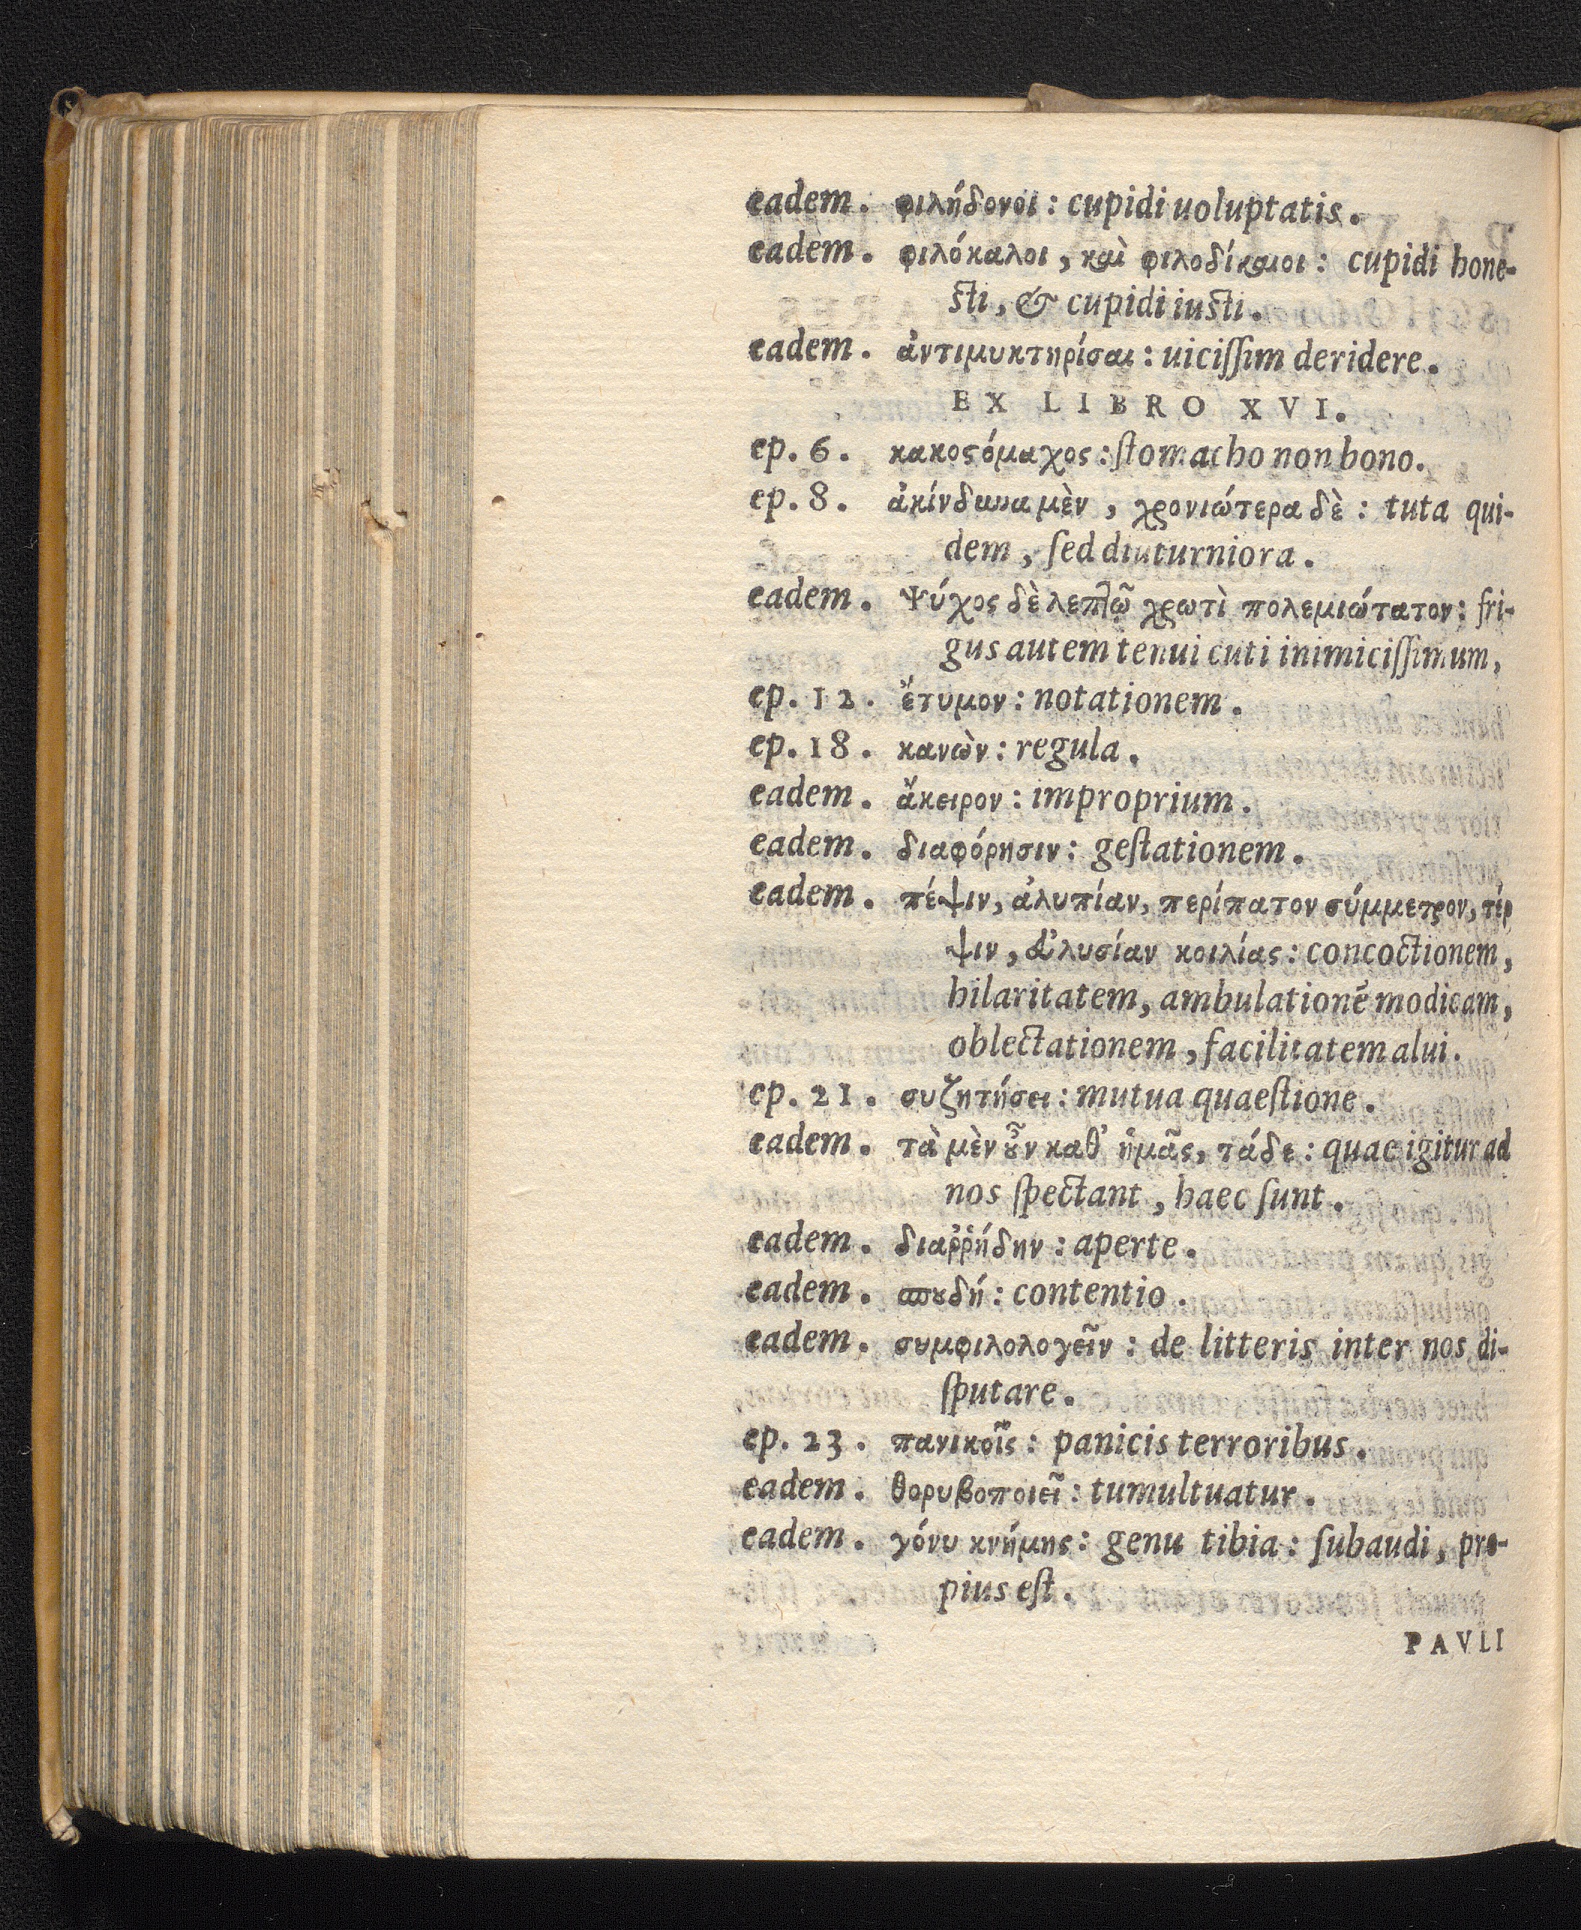 eadem. φιλήδονοι : cupidi uoluptatis.
eadem. φιλόκαλοι, καὶ φιλοδίκαιοι : cupidi hone-
sti, & cupidi iusti.
eadem. ἀντιμυκτηρίσαι : uiciſſim deridere.
EX LIBRO XVI.
ep. 6. κακοϛόμαχος : ſtomacho non bono.
ep. 8. ἀκίνδυνα μὲν, χρονιώτερα δὲ : tuta qui-
dem, ſed diuturniora.
eadem. Ψύχος δὲ λεπτῷ χρωτὶ πολεμιώτατον : fri-
gus autem tenui cuti inimiciſſimum,
ep. 12. ἔτυμον : notationem.
ep. 18. κανὼν : regula.
eadem. ἄκειρον : improprium.
eadem. διαφόρησιν : geſtationem.
eadem. πέψιν, ἀλυπίαν, περίπατον σύμμετρον, τέρ
ψιν, εὐλυσίαν κοιλίας : concoctionem,
hilaritatem, ambulationē modicam,
oblectationem, facilitatem alui.
ep. 21. συζητήσει : mutua quaeſtione.
eadem. τὰ μὲν ȣ̓͂ν καθ᾽ ἡμᾶς, τάδε : quae igitur ad
nos ſpectant, haec ſunt.
eadem. διαῤῥήδην : aperte.
eadem. σπȣδή : contentio.
eadem. συμφιλολογεῖν : de litteris inter nos di-
ſputare.
ep. 23. πανικοῖς : panicis terroribus.
eadem. θορυβοποιεῖ : tumultuatur.
eadem. γόνυ κνήμης : genu tibia : ſubaudi, pro-
pius eſt.
PAVLI